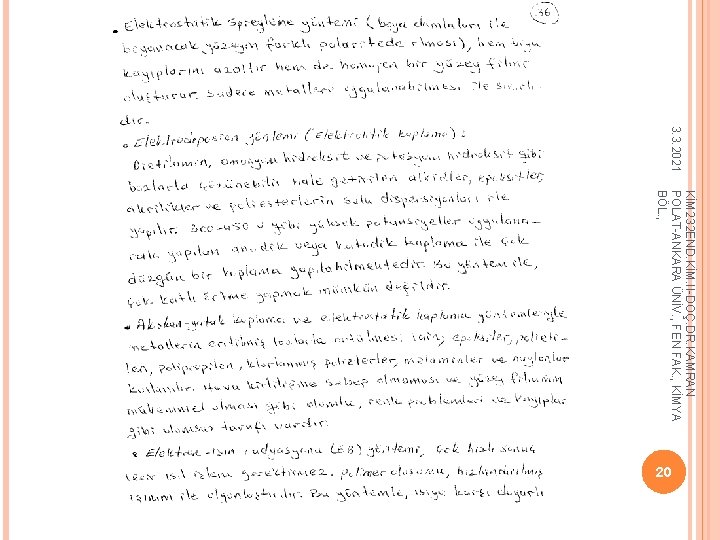 36
• Elektrostatik spreyleme yöntemi (boya damlaları ile
boyanacak yüzeyin farklı polaritede olması), hem boya
kayıplarını azaltır hem de homojen bir yüzey filmi
oluşturur. Sadece metallere uygulanabilmesi ile sınırlı-
dır.
• Elektrodeposion yöntemi (Elektrolitik kaplama):
Dietilamin, amonyum hidroksit ve potasyum hidroksit gibi
bazlarla çözünebilir hale getirilen alkidler, epoksitler,
akrilikler ve poliesterlerin sulu dispersiyonları ile
yapılır. 300-450 V gibi yüksek potansiyeller uygulana-
rak yapılan anodik veya katodik kaplama ile çok
düzgün bir kaplama yapılabilmektedir. Bu yöntem ile,
çok katlı örtme yapmak mümkün değildir.
• Akışkan-yatak kaplama ve elektrostatik kaplama yöntemleriyle
metallerin eritilmiş tozlarla örtülmesi için; epoksiler, polieti-
len, polipropilen, klorlanmış polieterler, melaminler ve naylonlar
kullanılır. Hava kirliliğine sebep olmaması ve yüzey filminin
mükemmel olması gibi olumlu, renk problemleri ve kayıplar
gibi olumsuz tarafı vardır.
• Elektron-ışın radyasyonu (EB) yöntemi, çok hızlı sonuç
ısıl işlem gerektirmez. polimer oluşumu, hızlandırılmış
ışınım ile olgunlaştırılır. Bu yöntemle, ısıya karşı duyarlı
3.3.2021
KİM 232 END.KİM.II-DOÇ.DR.KAMRAN
POLAT-ANKARA ÜNİV., FEN FAK., KİMYA
BÖL.,
20